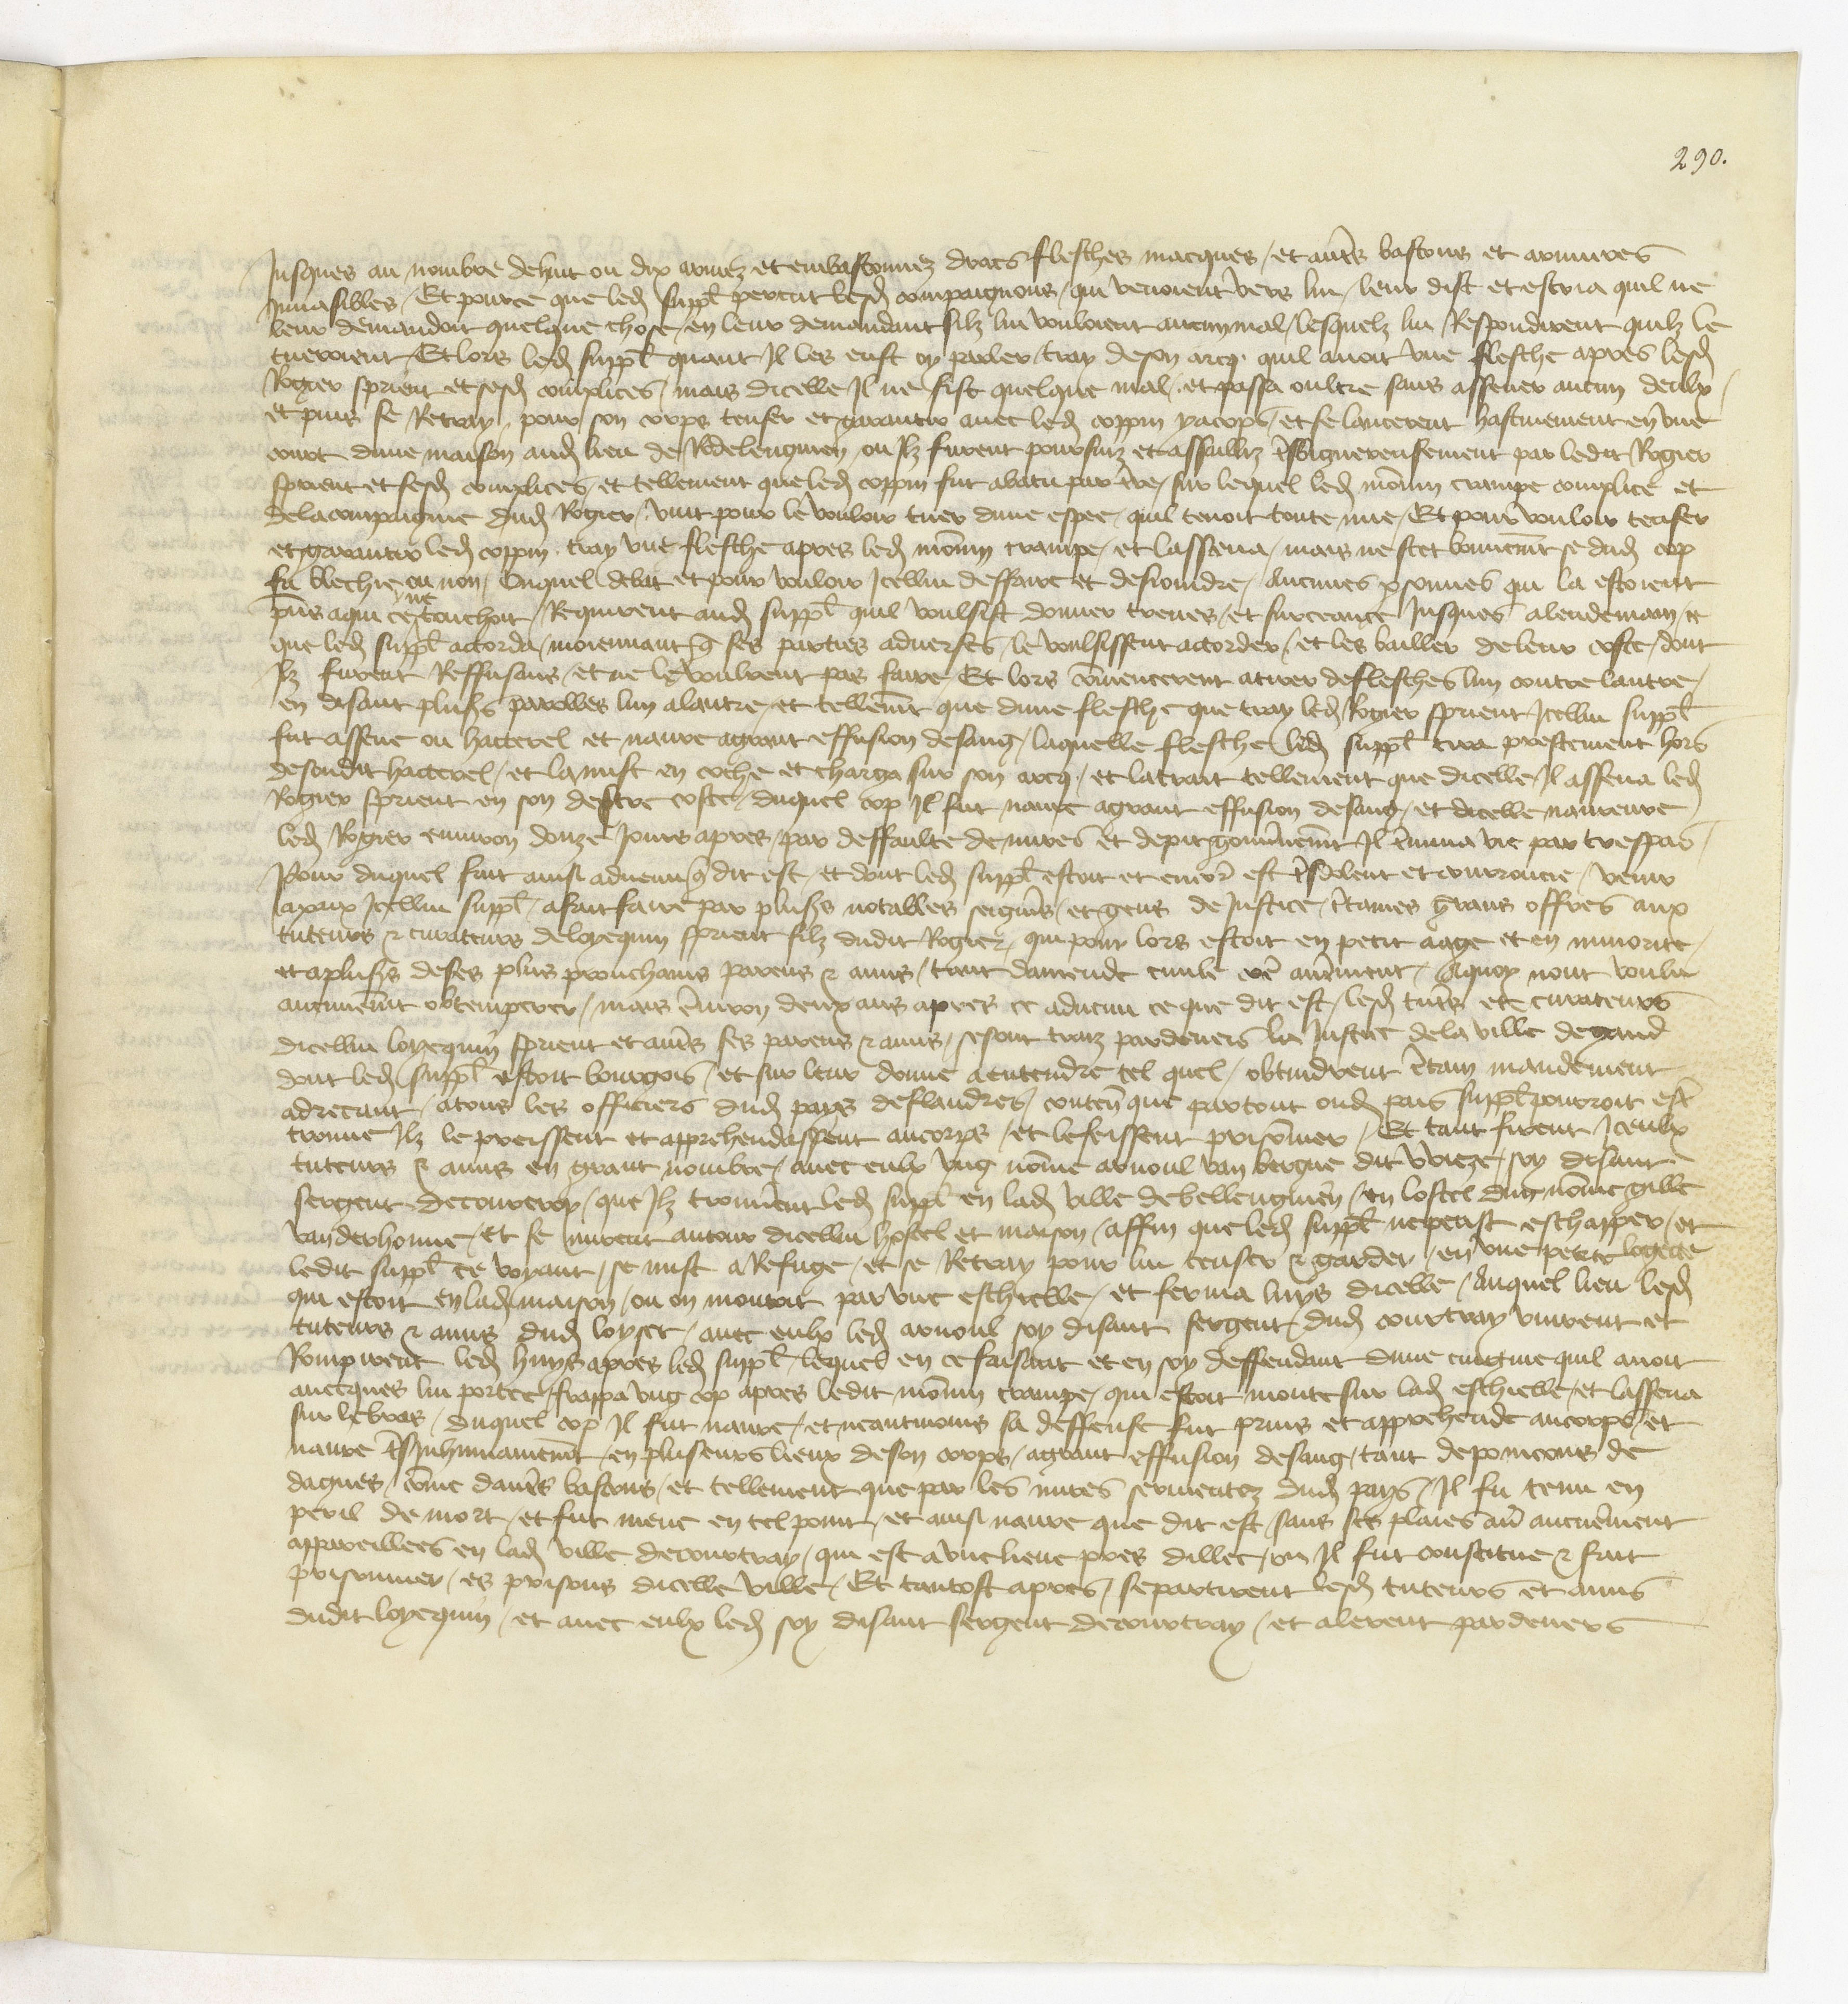 290.
Jusques au nombre de huit ou dix armez et embastonnez darcs flesches macques / et autres bastons et armures
Jnuasibles / Et pource que led suppl percut lesd compaignons / qui venoient vers lui / leur dist et escria quil ne
leur demandoit quelque chose / en leur demandant silz lui vouloient aucun mal / lesquelz lui Respondirent quilz le
tueroient / Et lors led suppl quant Jl les eust oy parler / tray de son arcq quil auoit vne flesche apres lesd
Rogier sprient et sesd complices / mais dicelle Jl ne fist quelque mal / et passa oultre sans assener aucun deulx /
et puis se Retray / pour son corps tenser et garantir auec led coppin yacops / et se lancerent hastiuement en vne
court dune maison aud lieu de Bellenguien / ou Jlz furent poursuiz et assailliz tresRigueureusement par ledit Rogier
sprient et sesd complices / et tellement que led coppin fut abatu par terre / sur lequel led monin crampe complice et
de la compaignie dud Rogier / vint pour le vouloir tuer dune espee / quil tenoit toute nue / Et pour vouloir tenser
et garantir led coppin tray vne flesche apres led monin crampe / et lassena / mais ne scet bonnement se dud cop
fu blechie ou non / Ouquel debat et pour vouloir Jcellui deffaire et desioindre / Aucunes personnes qui la estoient
pns aqui ce ne touchoit / Requirent aud suppl quil voulsist donner treues / et surceance Jusques alendemain / ce
que led suppl accorda / moiennant que ses parties aduerses / le voulsissent accorder / et les bailler de leur coste / dont
Jlz furent Reffusans / et ne le voulrent pas faire / Et lors commencerent atirer de flesches lun contre lautre /
en disant plus parolles lun alautre / et tellement que dune flesche que tray led Rogier sprient Jcellui suppl
fut assene ou hatterel et naure agrant effusion de sang / laquelle flesche led suppl tira prestement hors
de sondit hatterel / et la mist en coche et charga sur son arcq / et la trait tellement que dicelle Jl assena led
Rogier sprient en son destre coste / duquel cop Jl fut naure agrant effusion de sang / et dicelle naureure
led Rogier enuiron douze Jours apres / par deffaulte de mires et de petit gouuernement Jl termina vie par trespas /
Pour duquel fait ainsi aduenu que dit est / et dont led suppl estoit et encores est tresdolent et courroucie / venir
apaix Jcellui suppl / afait faire par plus notables seigneurs / et gens de Justice / certaines grans offres aux
tuteurs & curateurs de loyequin sprient filz dudit Rogier / qui pour lors estoit en petit aage et en minorite /
et aplus de ses plus prouchains parens & amis / tant damende ciuile que autrement / Aquoy nont voulu
aucunement obtemperer / mais enuiron deux ans apres ce aduenu ce que dit est / lesd tuteurs et curateurs
dicellui loyequin sprient et autres ses parens & amis / se sont traiz pardeuers la Justice de la ville de gand
dont led suppl estoit bourgois / et sur leur donne aentendre tel quel / obtindrent certain mandement
adrecant / atous les officiers dud pays de flandres / conten que partout oud pais suppl pourroit estre
trouue Jlz le preissent et apprehendassent au corps / et le feissent prisonnier / Et tant firent Jceulx
tuteurs & amis en grant nombre / auec eulx vng nomme arnoul van bergue dit Vrieze / soy disant
sergent de courtray / que Jlz trouuerent led suppl en lad ville de bellenguien / en lostel dung nomme gille
vanderhonne / Et se mirent autour dicellui hostel et maison / affin que led suppl ne peust eschapper / et
ledit suppl ce voyant / se mist aReffuge / et se Retray pour lui tenser & garder / en vne petite logecte
qui estoit en lad maison / ou on montoit par vne eschielle / et ferma luys dicelle / Auquel lieu lesd
tuteurs & amis dud loyset / auec eulx led arnoul soy disant sergent dud courtray vinrent et
Rompirent led huys apres led suppl / lequel en ce faisant et en soy deffendant dune cuignie quil auoit
auecques lui portee / frappa vng cop apres ledit monin crampe / qui estoit monte sur lad eschielle / et lassena
sur le bras / duquel cop Jl fut naure / et neantmoins sa deffense fut prins et apprehende au corps / et
naure tresinhumainement / en pluseurs lieux de son corps / agrant effusion de sang / tant de poincons de
dagues / comme dautres bastons / et tellement que par les mires sermentez dud pays / Jl fu tenu en
peril de mort / et fut mene en tel point / et ainsi naure que dit est / sans ses plaies autre aucunement
appareillees en lad ville de courtray / qui est a vne lieue pres dillec / ou Jl fut constitue & fait
prisonnier / es prisons dicelle ville / Et tantost apres / se partirent lesd tuteurs et amis
dudit loyequin / et auec eulx led soy disant sergent de courtray / et alerent pardeuers